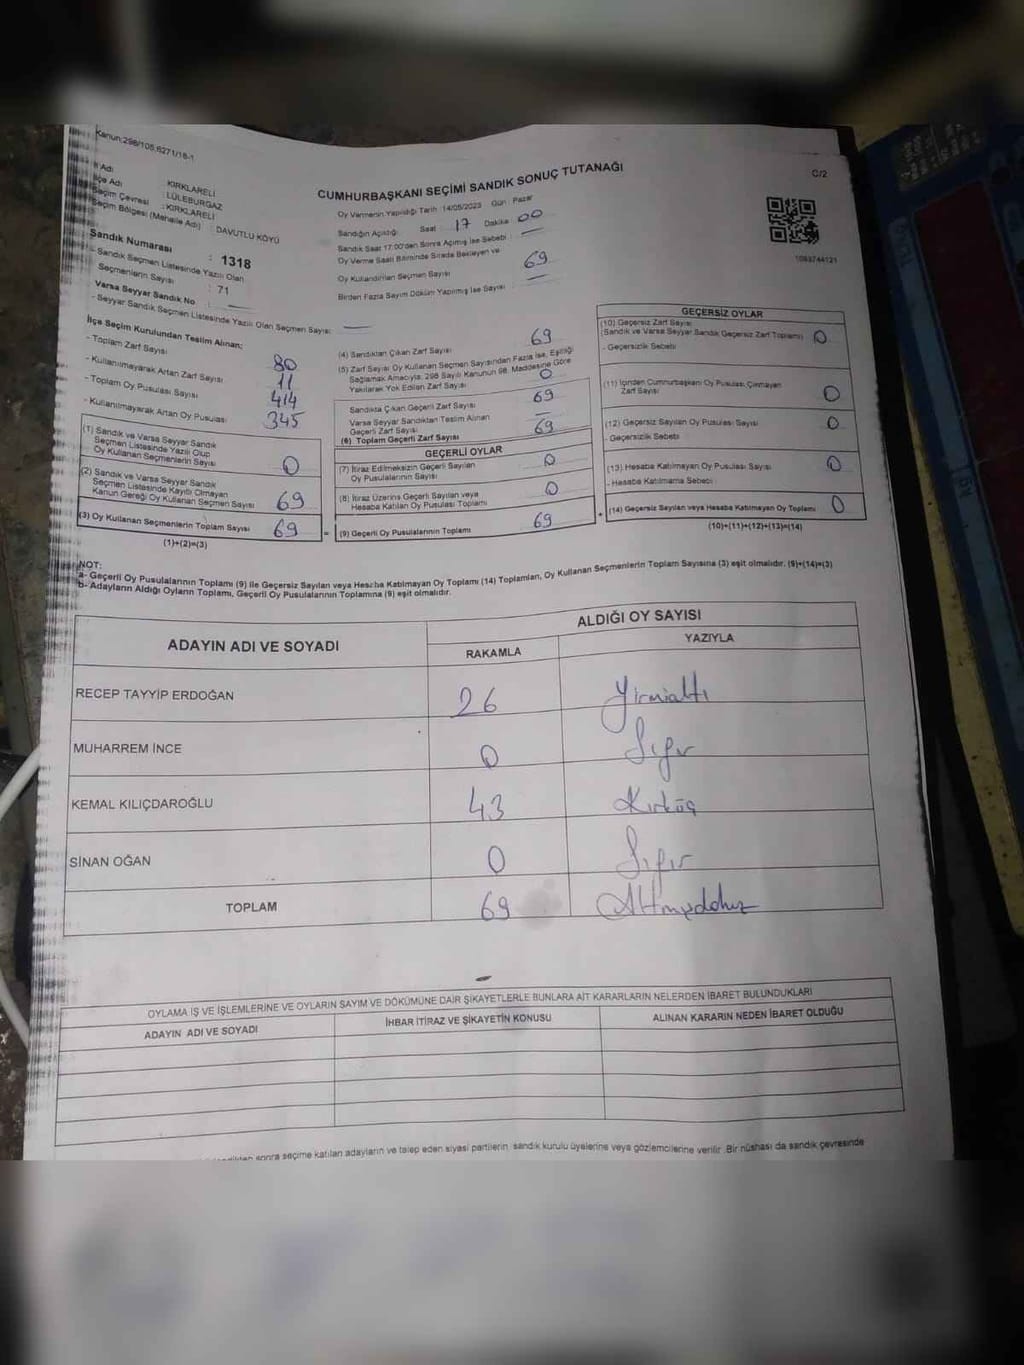 Kanun:298/105,6271/18-1
C/2
CUMHURBAŞKANI SEÇİMİ SANDIK SONUÇ TUTANAĞI
İl Adı : KIRKLARELİ
İlçe Adı : LÜLEBURGAZ
Seçim Çevresi : KIRKLARELİ
Seçim Bölgesi (Mahalle Adı) : DAVUTLU KÖYÜ
Sandık Numarası : 1318
- Sandık Seçmen Listesinde Yazılı Olan
Seçmenlerin Sayısı : 71
Varsa Seyyar Sandık No :
- Seyyar Sandık Seçmen Listesinde Yazılı Olan Seçmen Sayısı:
Oy Vermenin Yapıldığı Tarih :14/05/2023 Gün : Pazar
Sandığın Açıldığı: Saat : 17 Dakika : 00
Sandık Saat 17:00'den Sonra Açılmış İse Sebebi :
Oy Verme Saati Bitiminde Sırada Bekleyen ve
Oy Kullandırılan Seçmen Sayısı : 69
Birden Fazla Sayım Döküm Yapılmış İse Sayısı :
İlçe Seçim Kurulundan Teslim Alınan:
- Toplam Zarf Sayısı 80
- Kullanılmayarak Artan Zarf Sayısı 11
- Toplam Oy Pusulası Sayısı 414
- Kullanılmayarak Artan Oy Pusulası 345
(1) Sandık ve Varsa Seyyar Sandık
Seçmen Listesinde Yazılı Olup
Oy Kullanan Seçmenlerin Sayısı 0
(2) Sandık ve Varsa Seyyar Sandık
Seçmen Listesinde Kayıtlı Olmayan
Kanun Gereği Oy Kullanan Seçmen Sayısı 69
(3) Oy Kullanan Seçmenlerin Toplam Sayısı 69
(1)+(2)=(3)
(4) Sandıktan Çıkan Zarf Sayısı 69
(5) Zarf Sayısı Oy Kullanan Seçmen Sayısından Fazla İse, Eşitliği
Sağlamak Amacıyla, 298 Sayılı Kanunun 98. Maddesine Göre
Yakılarak Yok Edilen Zarf Sayısı 0
Sandıkta Çıkan Geçerli Zarf Sayısı 69
Varsa Seyyar Sandıktan Teslim Alınan
Geçerli Zarf Sayısı
(6) Toplam Geçerli Zarf Sayısı 69
GEÇERLİ OYLAR
(7) İtiraz Edilmeksizin Geçerli Sayılan
Oy Pusulalarının Sayısı 0
(8) İtiraz Üzerine Geçerli Sayılan veya
Hesaba Katılan Oy Pusulası Toplamı 0
= (9) Geçerli Oy Pusulalarının Toplamı 69 +
1083744121
GEÇERSİZ OYLAR
(10) Geçersiz Zarf Sayısı
(Sandık ve Varsa Seyyar Sandık Geçersiz Zarf Toplamı) 0
- Geçersizlik Sebebi
(11) İçinden Cumhurbaşkanı Oy Pusulası Çıkmayan
Zarf Sayısı 0
(12) Geçersiz Sayılan Oy Pusulası Sayısı 0
- Geçersizlik Sebebi
(13) Hesaba Katılmayan Oy Pusulası Sayısı 0
- Hesaba Katılmama Sebebi
(14) Geçersiz Sayılan veya Hesaba Katılmayan Oy Toplamı 0
(10)+(11)+(12)+(13)=(14)
NOT:
a- Geçerli Oy Pusulalarının Toplamı (9) ile Geçersiz Sayılan veya Hesaba Katılmayan Oy Toplamı (14) Toplamları, Oy Kullanan Seçmenlerin Toplam Sayısına (3) eşit olmalıdır. (9)+(14)=(3)
b- Adayların Aldığı Oyların Toplamı, Geçerli Oy Pusulalarının Toplamına (9) eşit olmalıdır.
ADAYIN ADI VE SOYADI
ALDIĞI OY SAYISI
RAKAMLA YAZIYLA
RECEP TAYYİP ERDOĞAN 26 Yirmialtı
MUHARREM İNCE 0 Sıfır
KEMAL KILIÇDAROĞLU 43 Kırküç
SİNAN OĞAN 0 Sıfır
TOPLAM 69 Altmışdokuz
OYLAMA İŞ VE İŞLEMLERİNE VE OYLARIN SAYIM VE DÖKÜMÜNE DAİR ŞİKAYETLERLE BUNLARA AİT KARARLARIN NELERDEN İBARET BULUNDUKLARI
ADAYIN ADI VE SOYADI İHBAR İTİRAZ VE ŞİKAYETİN KONUSU ALINAN KARARIN NEDEN İBARET OLDUĞU
sonra seçime katılan adayların ve talep eden siyasi partilerin sandık kurulu üyelerine veya gözlemcilerine verilir. Bir nüshası da sandık çevresinde